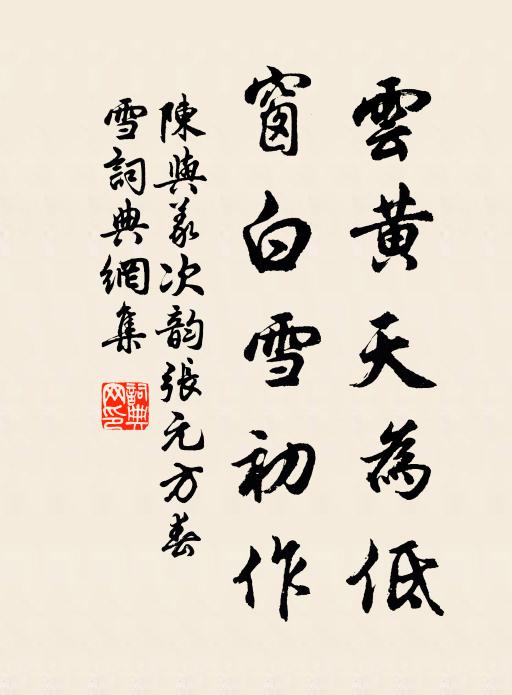 雲黃天為低
窗白雪初作
陳與義次韵張元方春
雪詞典網集
詞典网印